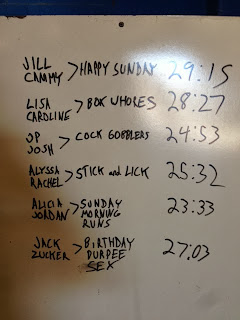 JILL
CAMMY > HAPPY SUNDAY 29:15
LISA
CAROLINE > BOX WHORES 28:27
JP
JOSH > COCK GOBBLERS 24:53
ALYSSA
RACHEL > STICK and LICK 25:32
ALICIA
JORDAN > SUNDAY
MORNING
RUNS 23:33
JACK
ZUCKER > BIRTHDAY
PURPEE
SEX 27:03